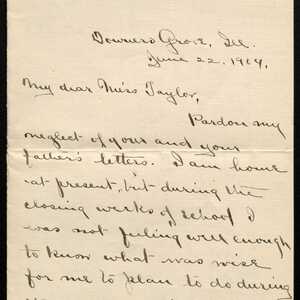 Downers Grove, Ill.
June 22, 1919.
My dear Miss Taylor,
Pardon my
neglect of your and your
father's letters. I am home
at present, but during the
closing weeks of school I
was not feeling well enough
to know what was wise
for me to plan to do during